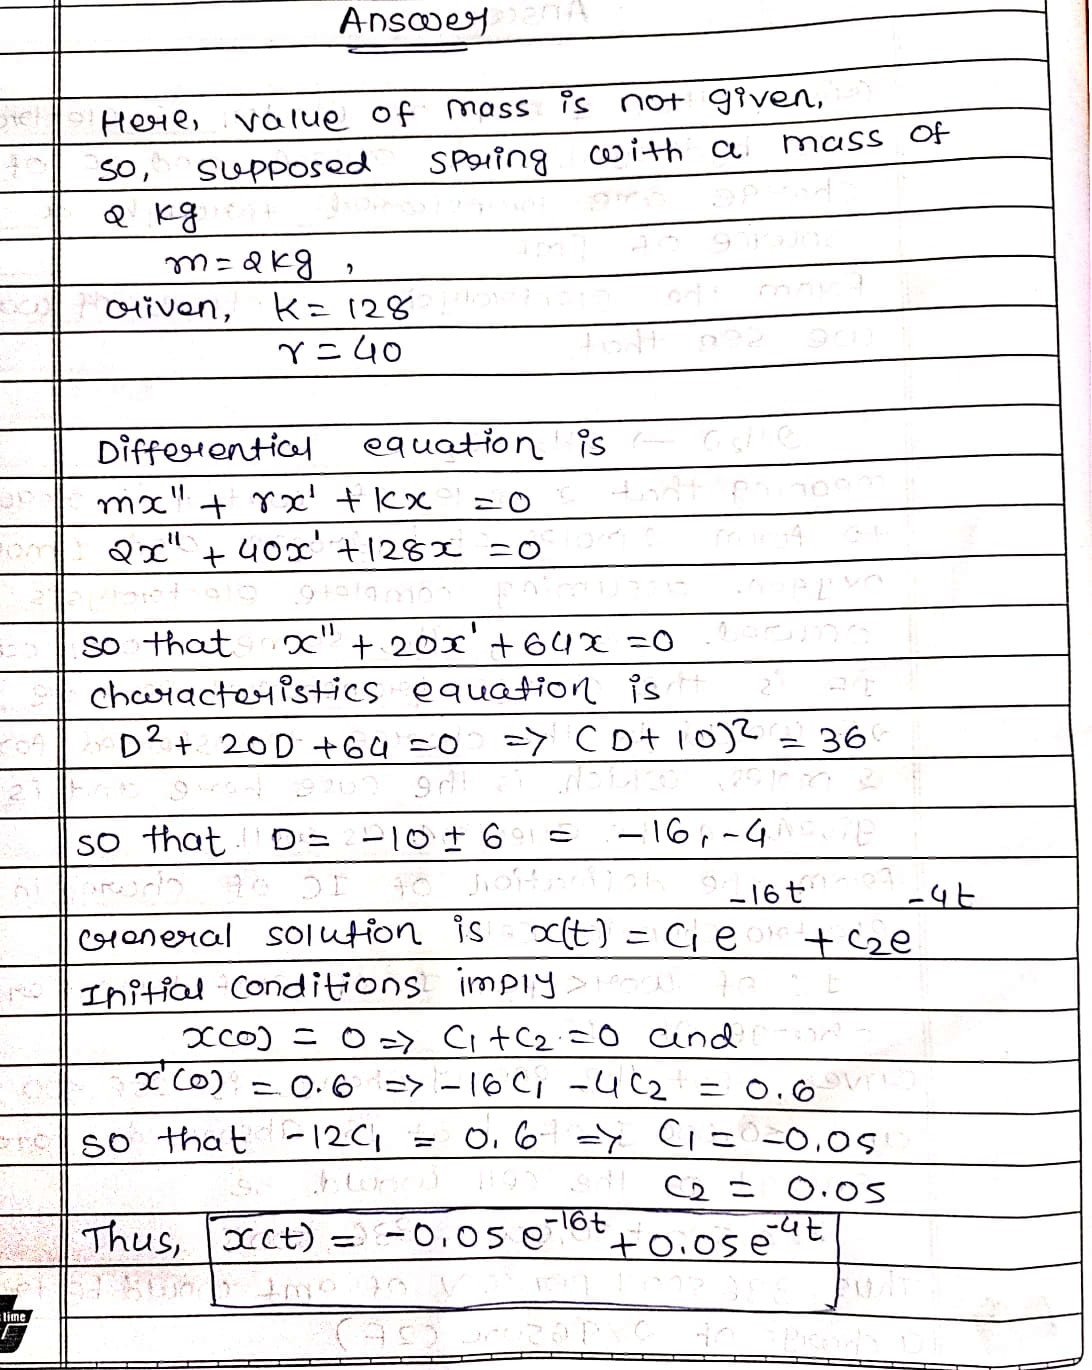 Answer
Here, value of mass is not given,
so, supposed spring with a mass of
2 kg
m=2kg ,
Given, K= 128
r = 40
Differential equation is
mx" + rx' + kx = 0
2x" + 40x' + 128x = 0
so that x" + 20x' + 64x = 0
characteristics equation is
D² + 20D + 64 = 0 => (D+10)² = 36
so that D = -10 ± 6 = -16, -4
General solution is x(t) = C₁e^-16t + C₂e^-4t
Initial conditions imply
x(0) = 0 => C₁ + C₂ = 0 and
x'(0) = 0.6 => -16C₁ - 4C₂ = 0.6
so that -12C₁ = 0.6 => C₁ = -0.05
C₂ = 0.05
Thus, x(t) = -0.05e^-16t + 0.05e^-4t
lime